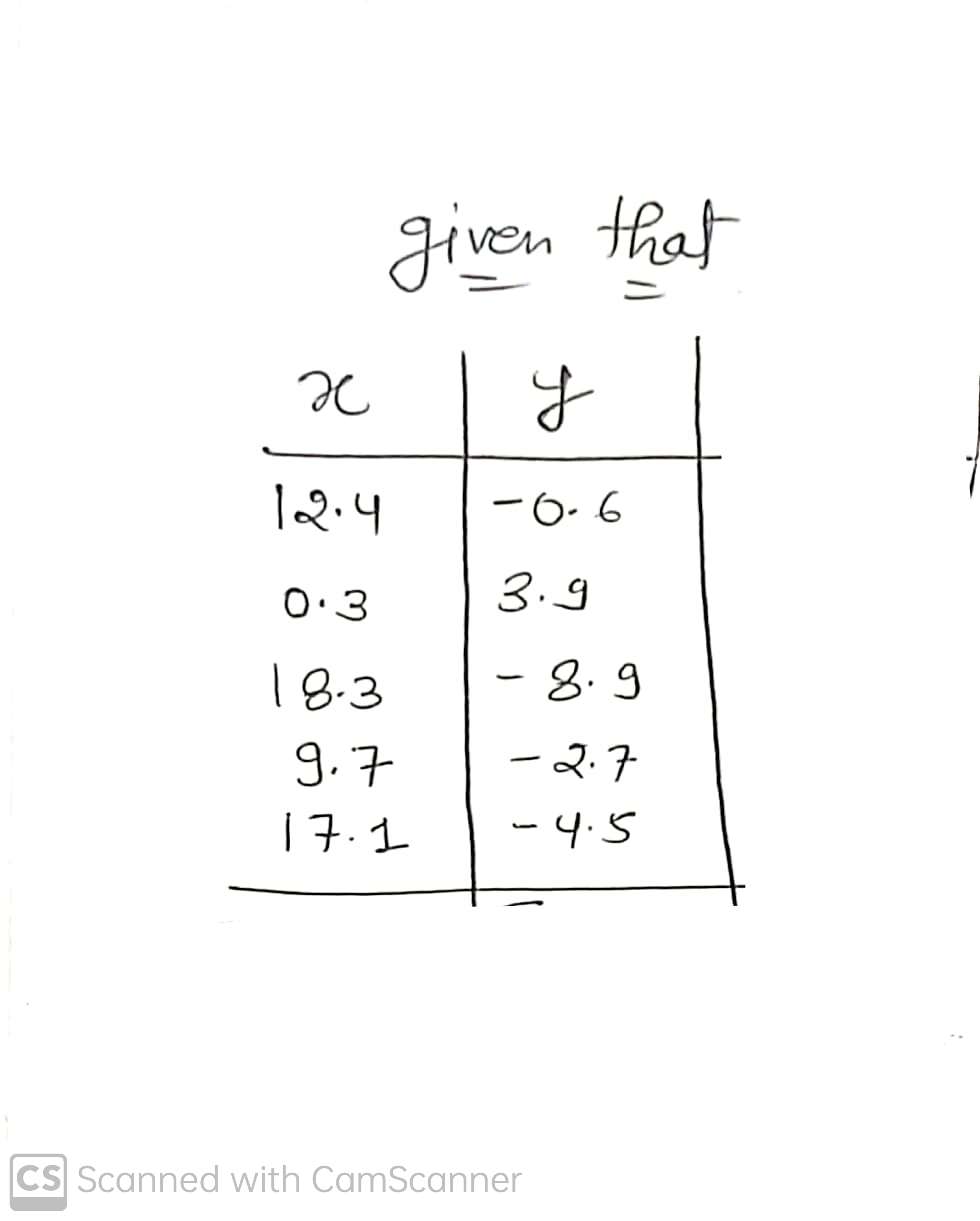 given that
x y
12.4 -0.6
0.3 3.9
18.3 -8.9
9.7 -2.7
17.1 -4.5
CS Scanned with CamScanner